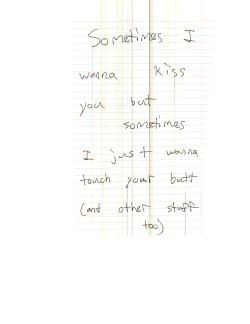 Sometimes I
wanna kiss
you but
sometimes
I just wanna
touch your butt
(and other stuff
too)